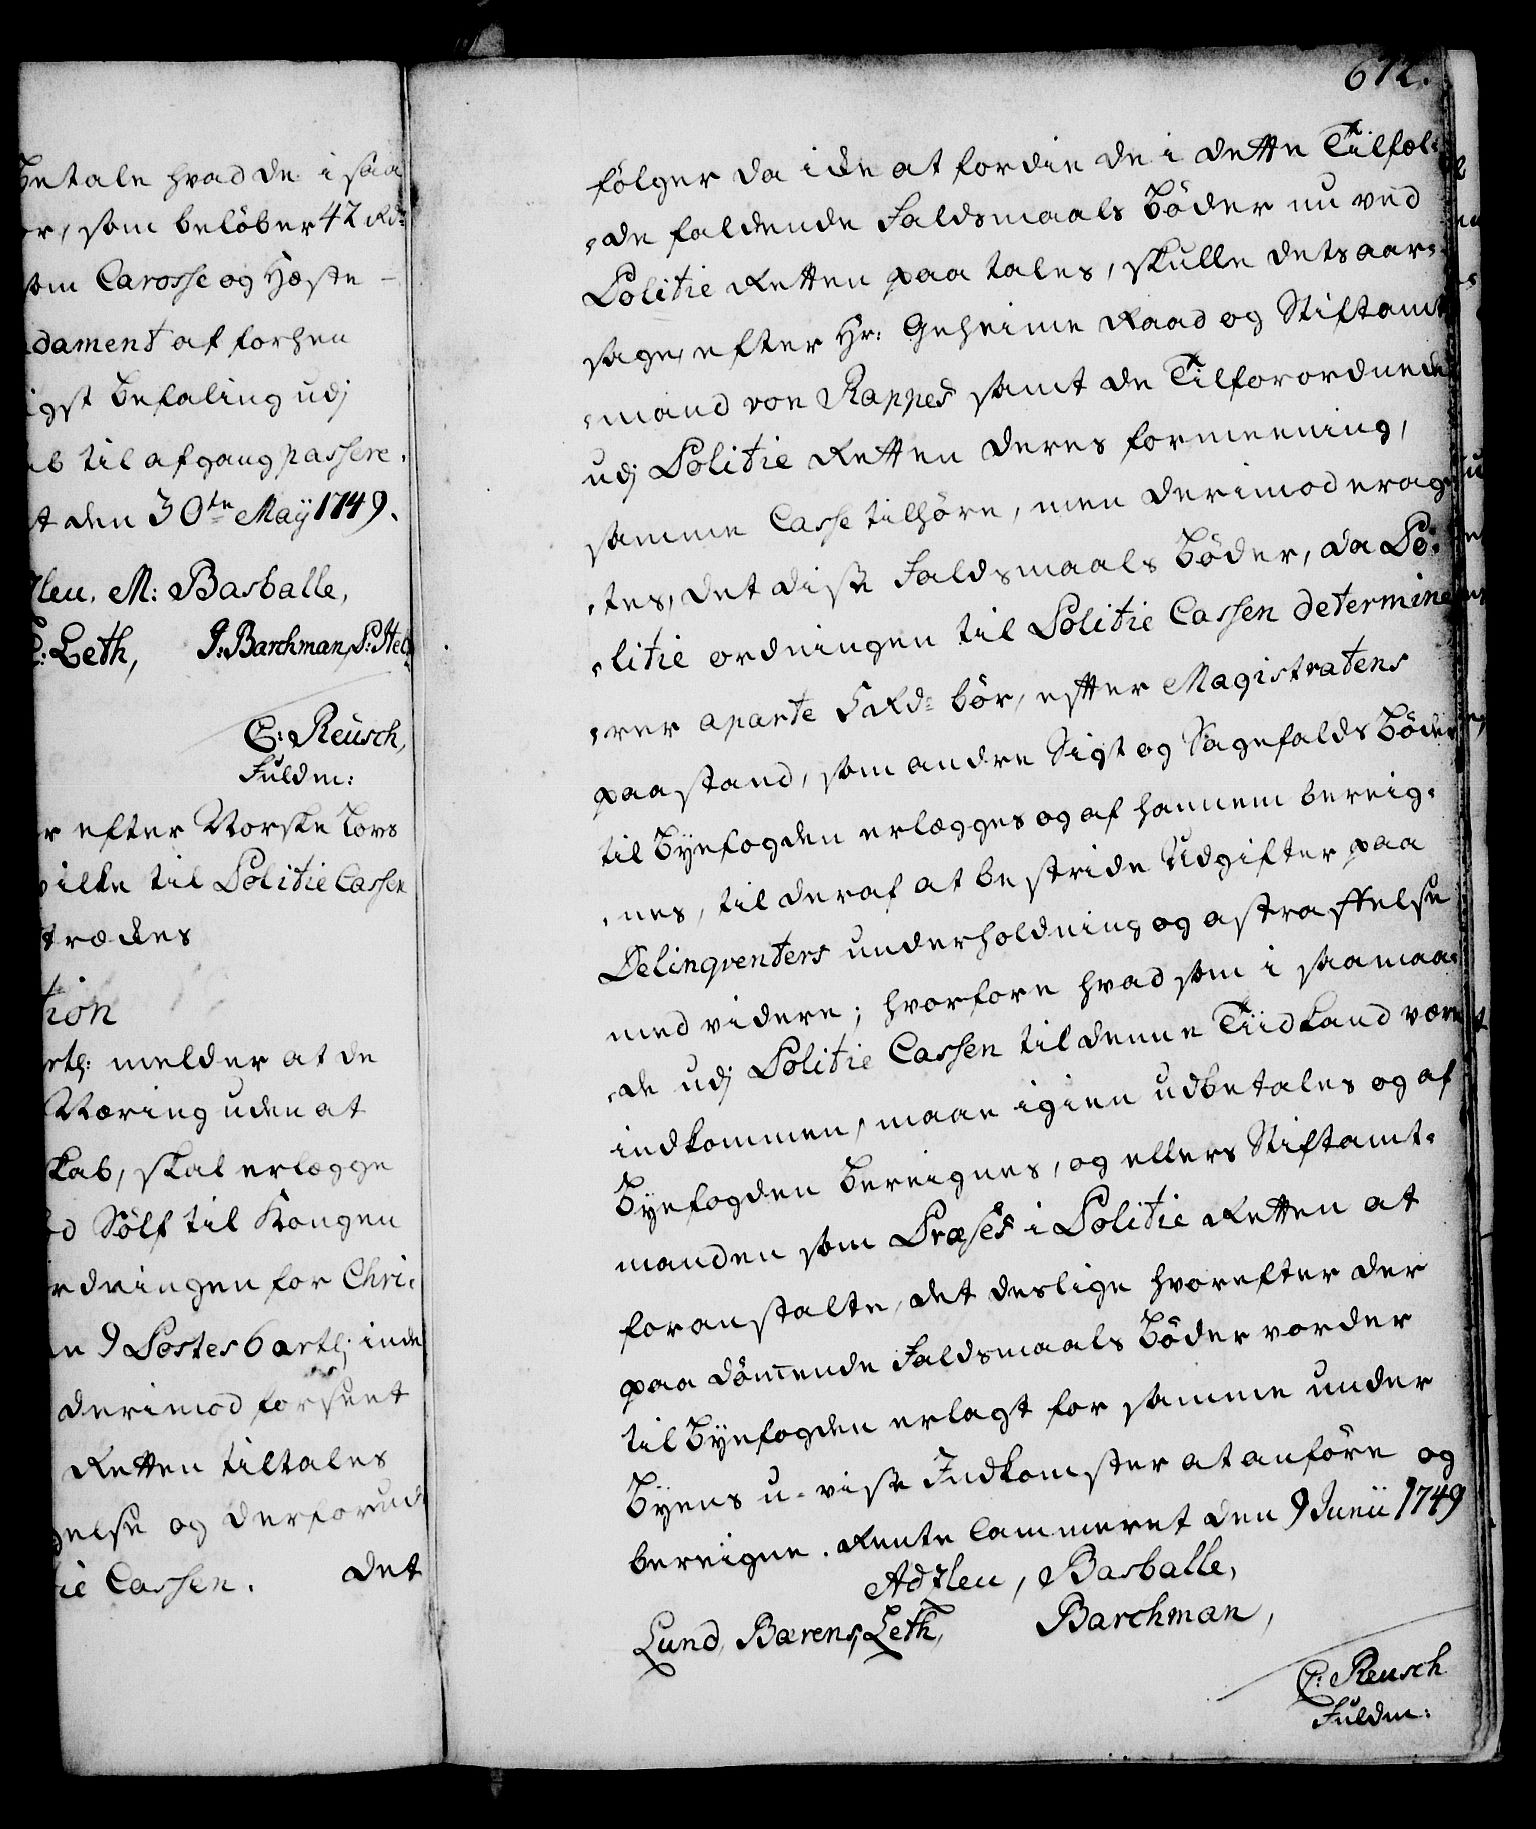 betale hvad de i saa
er, som beløber 42 Rd:
som Carosse og Hæste -
dament af forhen
igst Befaling udj
til afgang passere.
t den 30te Maÿ 1749.
M: Basballe,
Leth, J: Barchman,
C: Reusch,
Fuldm:
r efter Norske Lovs
hvilke til Politie Cassen
trædes
tion
melder at de
Næring uden at
skab, skal erlægge
Sølf til Kongen
rdningen for Chri-
9 Postes 6 artl: inde
derimod forseet
Retten tiltales
gelse og derforuden
ie Cassen. det
672.
følger da icke at fordie de i dette Tilfæl-
-de faldende Faldsmaals Bøder nu ved
Politie Retten paa tales, skulle detsaar-
sage, efter Hr: Geheime Raad og Stiftamt
-mand von Rappes samt de Tilforordnede
udj Politie Retten deres formeening,
samme Casse tilhøre, men derimod erag-
-tes, det disse Faldsmaals Bøder, da Po-
-litie ordningen til Politie Cassen determine-
-rer aparte 5 Rd: bør, efter Magistratens
paastand, som andre Sigt og Sagefalds Bøder
til Byefogden erlægges og af hannem bereig-
-nes, til deraf at bestride Udgifter paa
Delinqventers underholdning og astraffelse
med videre; hvorfore hvad som i saamaa-
-de udj Politie Cassen til denne Tiid kand være
indkommen, maae igien udbetales og af
Byefogden bereignes, og ellers Stiftamt-
manden som Præses i Politie Retten at
foranstalte, det deslige hvorefter der
paa dømende Faldsmaals Bøder vorder
til Byefogden erlagt for samme under
Byens u-visse Indkomster at anføre og
bereigne. Rente Cammeret den 9 Junii 1749
Basballe,
Lund, Bærens, Leth, Barchman,
C: Reusch
Fuldm: